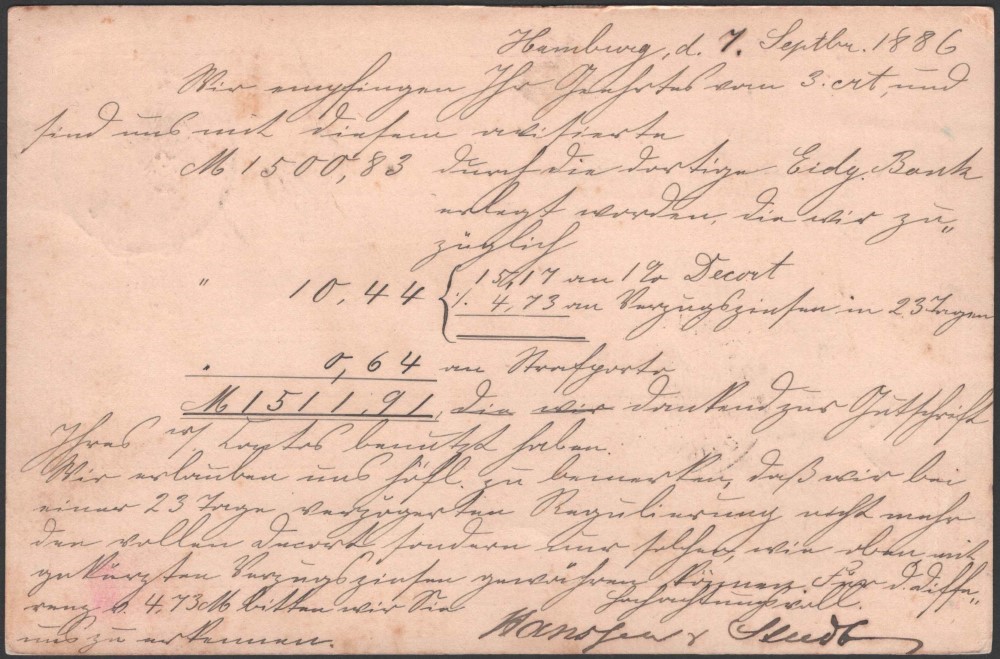 Hamburg, d. 7. Septbr. 1886
Wir empfingen Ihr Geehrtes vom 3. crt, und
sind uns mit diesem avisierte
M 1500,83 durch die dortige Eidg. Bank
erlegt worden, die wir zu„
züglich
" 10,44 { 15,17 an 1% Decort
./. 4,73 an Verzugszinsen in 23 Tagen
" 0,64 an Strafporto
M 1511,91, die wir dankend zur Gutschrift
Ihres w/ Contos benutzt haben.
Wir erlauben uns höfl. zu bemerken, daß wir bei
einer 23 Tage verzögerten Regulierung nicht mehr
den vollen Decort sondern nur solchen, wie oben mit
gekürzten Verzugszinsen gewähren können. Für d. Diffe„
renz v. 4.73 M bitten wir Sie
Hochachtungsvoll.
uns zu erkennen. Hanssen & Studt